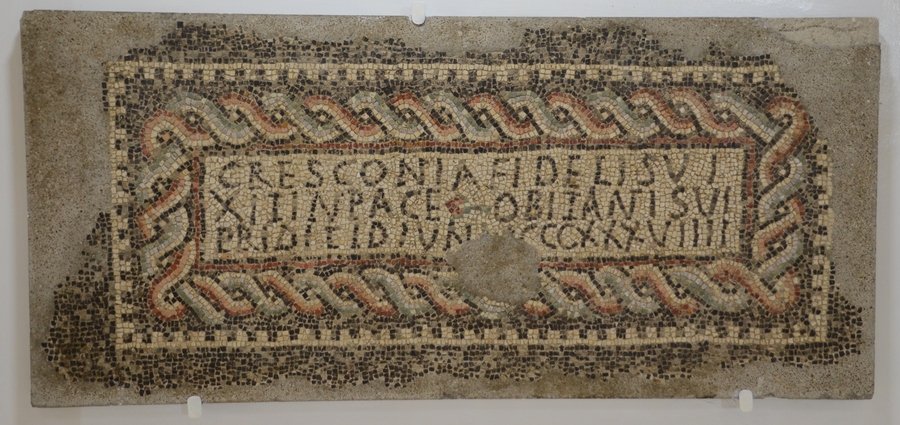 CRESCONIA FIDELIS VI
XIT IN PACE OBIIT ANIS VI
PRIDIE ID IVN CCCXXXVIIII